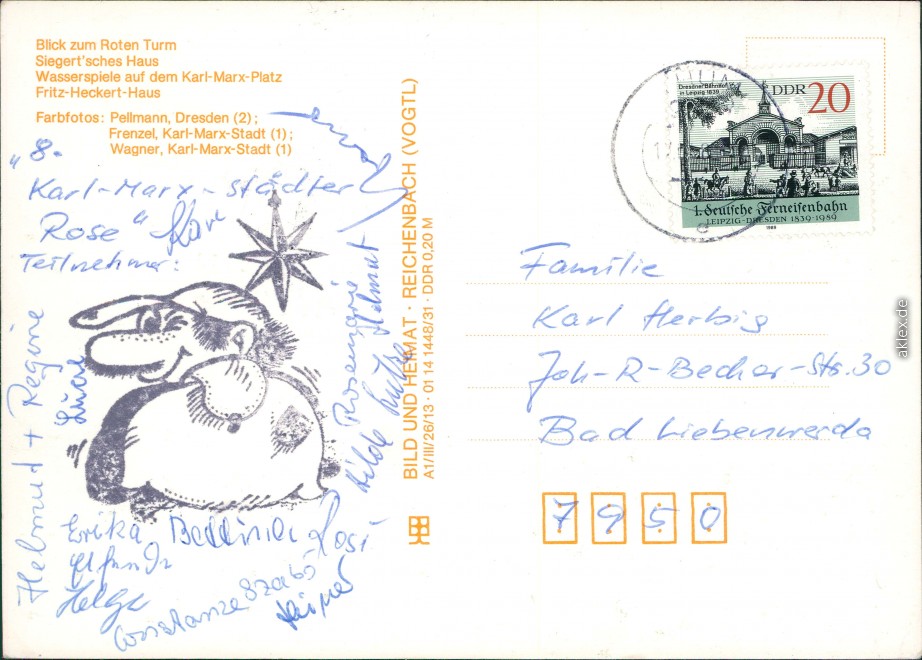 Blick zum Roten Turm
Siegert'sches Haus
Wasserspiele auf dem Karl-Marx-Platz
Fritz-Heckert-Haus
Farbfotos: Pellmann, Dresden (2);
Frenzel, Karl-Marx-Stadt (1);
Wagner, Karl-Marx-Stadt (1)
"8.
Karl-Marx-Städter
Rose"
Teilnehmer:
Helmut + Regine
Rosemarie
Helmut
Hilde
Erika Bettina Rosi
Helga
Constanze Szabó
Rainer
BILD UND HEIMAT · REICHENBACH (VOGTL)
A1/III/26/13 · 01 14 1448/31 · DDR 0,20 M
Dresdner Bahnhof
in Leipzig 1839
DDR 20
1. deutsche Ferneisenbahn
LEIPZIG-DRESDEN 1839-1989
1989
Familie
Karl Herbig
Joh-R-Becher-Str. 30
Bad Liebenwerda
7950
aklex.de